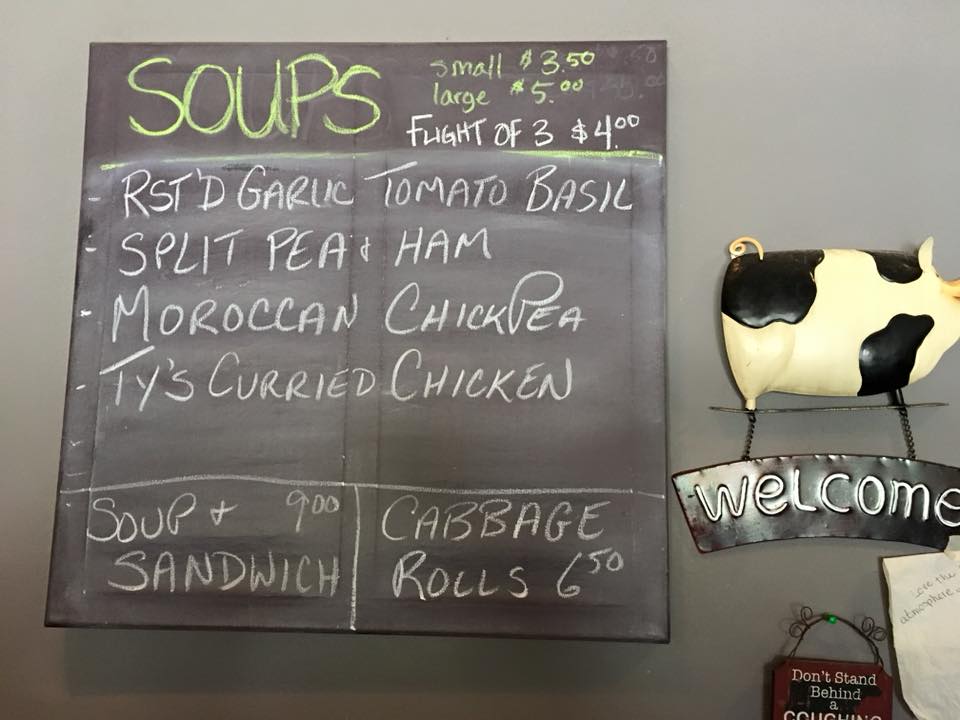 SOUPS
small $3.50
large $5.00
FLIGHT OF 3 $4.00
- RST'D GARLIC TOMATO BASIL
- SPLIT PEA & HAM
- MOROCCAN CHICKPEA
- TY'S CURRIED CHICKEN
SOUP & 9.00
SANDWICH
CABBAGE
ROLLS 6.50
WELCOME
Love the
atmosphere
Don't Stand
Behind
a
COUGHING